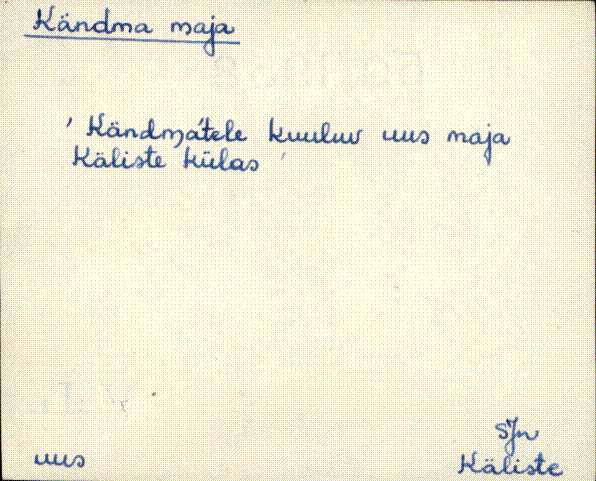 Kändma maja
' Kändma'tele kuuluv uus maja
Käliste külas '
SJn
uus
Käliste